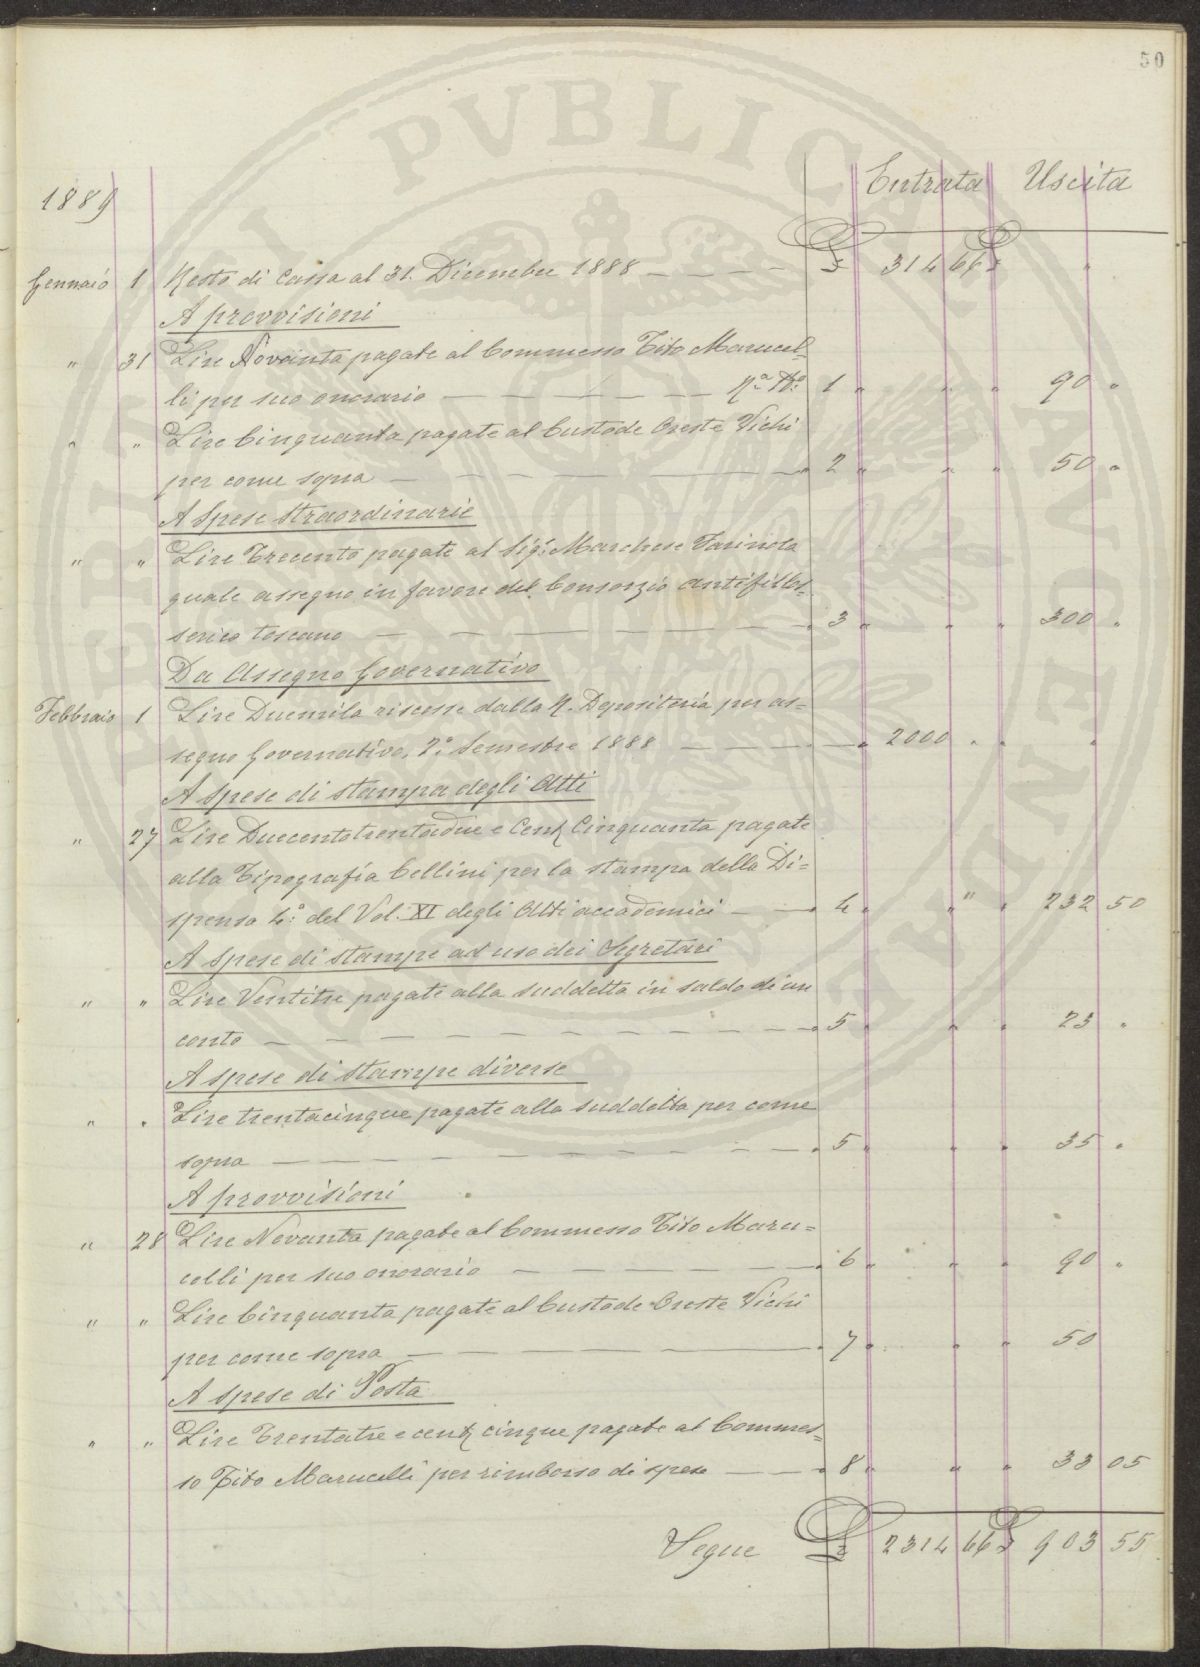 50
Entrata Uscita
1889
Gennaio 1 Resto di Cassa al 31. Dicembre 1888 — £ 314 66 £ "
A provvisioni
" 31 Lire Novanta pagate al Commesso Tito Marucel=
li per suo onorario — 1 " " " 90 "
" " Lire Cinquanta pagate al Custode Oreste Vichi
per come sopra — 2 " " " 50 "
A Spese Straordinarie
" " Lire Trecento pagate al Sig.r Marchese
quale assegno in favore del Consorzio antifillos=
serico toscano — 3 " " " 300 "
Da Assegno Governativo
Febbraio 1 Lire Duemila riscosse dalla R. Depositeria per as=
segno Governativo, 2.o Semestre 1888 — " 2000 " " "
A Spese di stampa degli Atti
" 27 Lire Duecentotrentadue e Cent. Cinquanta pagate
alla Tipografia Cellini per la stampa della Di=
spensa 4.a del Vol. XI degli Atti accademici — 4 " " " 232 50
A Spese di stampe ad uso dei Segretari
" " Lire Ventitre pagate alla suddetta in saldo di un
conto — 5 " " " 23 "
A spese di stampe diverse
" " Lire trentacinque pagate alla suddetta per come
sopra — 5 " " " 35 "
A provvisioni
" 28 Lire Novanta pagate al Commesso Tito Maru=
celli per suo onorario — 6 " " " 90 "
" " Lire Cinquanta pagate al Custode Oreste Vichi
per come sopra — 7 " " " 50
A Spese di Posta
" " Lire Trentatre e cent. cinque pagate al Commes=
so Tito Marucelli per rimborso di spese — 8 " " " 33 05
Segue £ 2314 66 £ 903 55